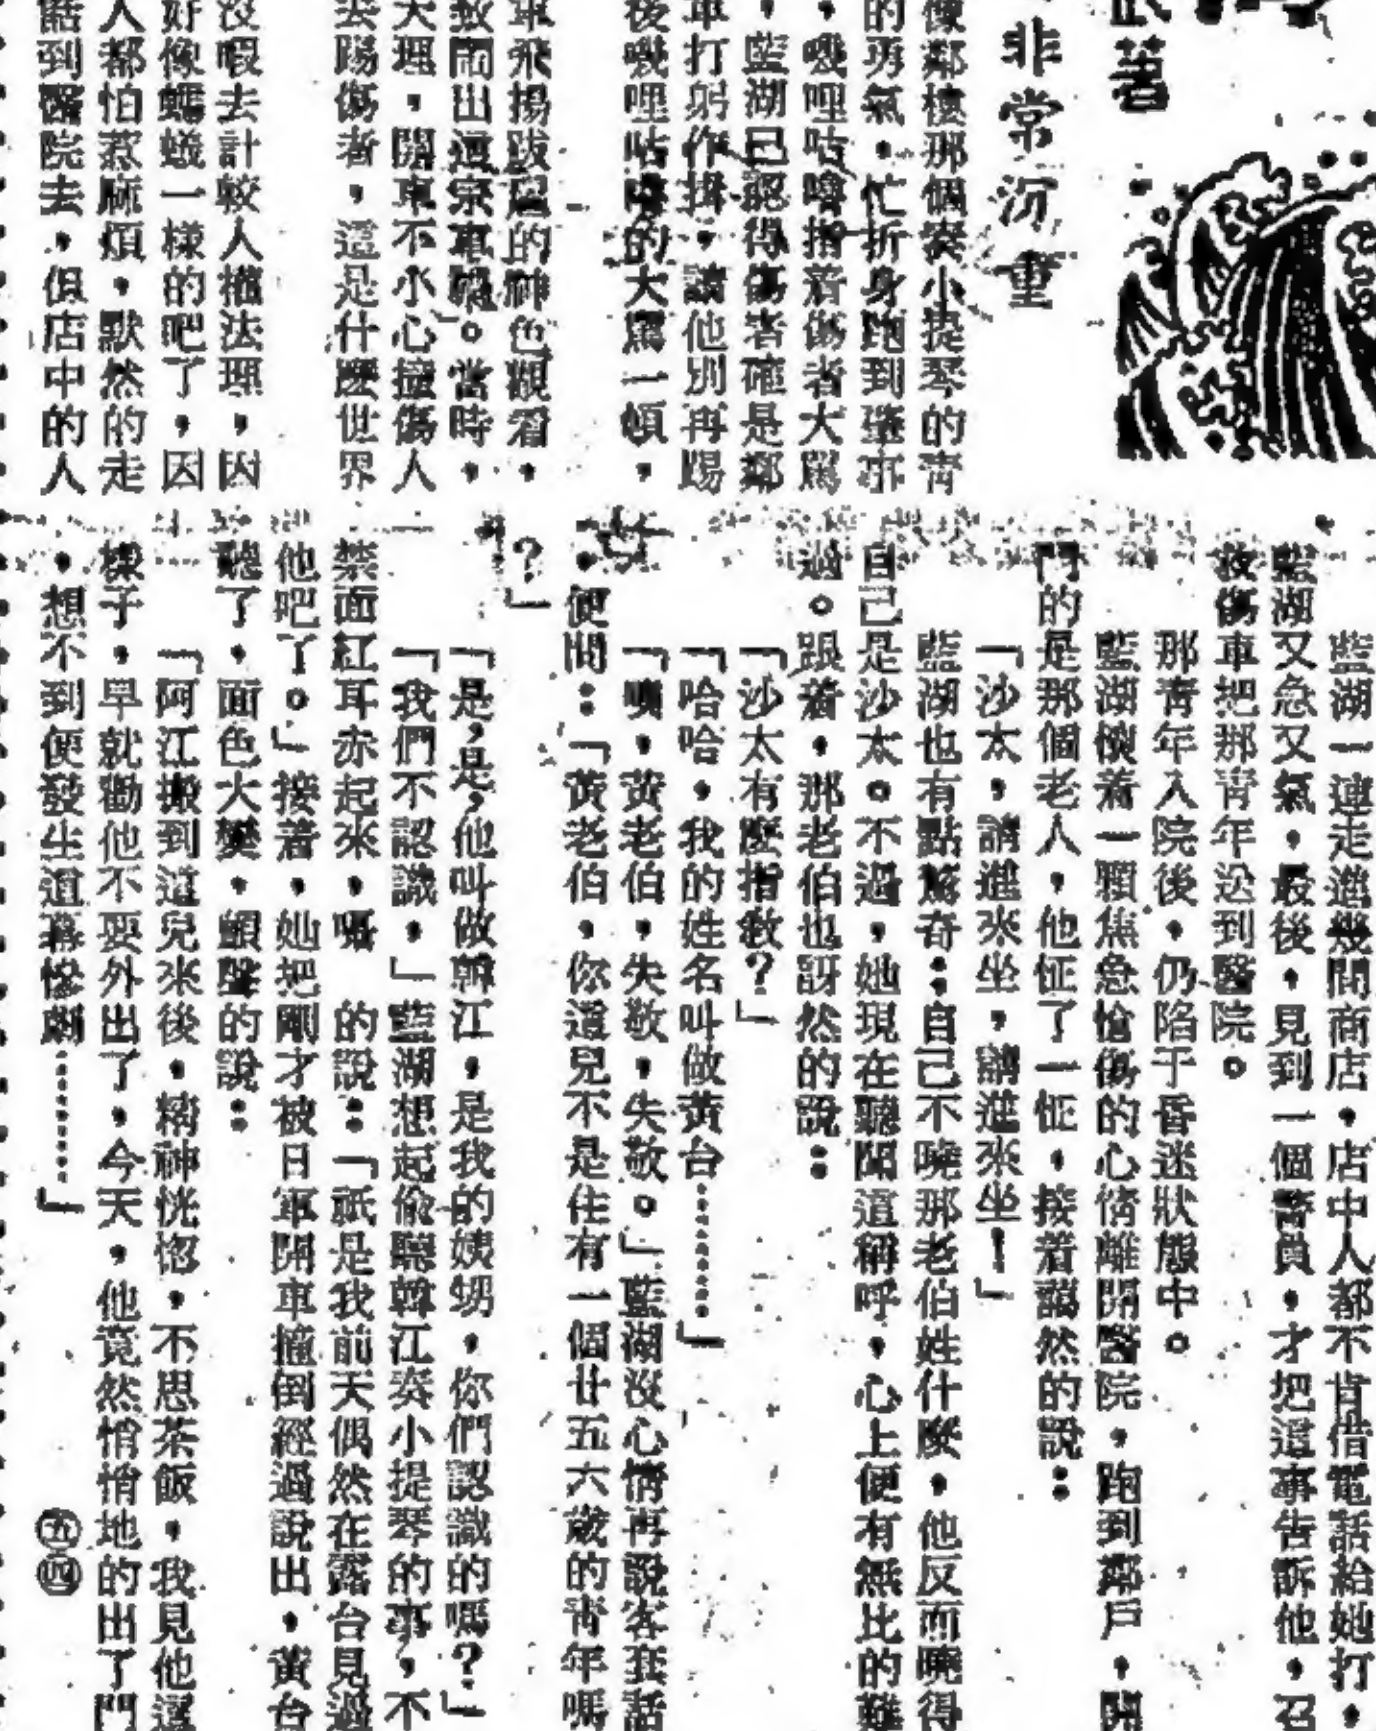 武著
非常沉重
像鄰樓那個奏小提琴的青
的勇氣，忙折身跑到肇事
，嘰哩咕嚕指着傷者大罵
，藍湖已認得傷者確是鄰
車打躬作揖，請他別再踢
後嘰哩咕嚕的大罵一頓，
車飛揚跋扈的神色觀看，
敢鬧出這宗車禍。當時，
天理，開車不小心撞傷人
去踢傷者，這是什麼世界
沒暇去計較人權法理，因
好像螞蟻一樣的吧了，因
人都怕惹麻煩，默然的走
話到醫院去，但店中的人
藍湖一連走進幾間商店，店中人都不肯借電話給她打，
藍湖又急又氣，最後，見到一個警員，才把這事告訴他，召
救傷車把那青年送到醫院。
那青年入院後，仍陷于昏迷狀態中。
藍湖懷着一顆焦急愴傷的心情離開醫院，跑到鄰戶，開
門的是那個老人，他怔了一怔，接着藹然的說：
「沙太，請進來坐，請進來坐！」
藍湖也有點驚奇：自己不曉那老伯姓什麼，他反而曉得
自己是沙太。不過，她現在聽聞這稱呼，心上便有無比的難
過。跟着，那老伯也訝然的說：
「沙太有麼指教？」
「哈哈，我的姓名叫做黃台…………」
「噢，黃老伯，失敬，失敬。」藍湖沒心情再說客套話
，便問：「黃老伯，你這兒不是住有一個廿五六歲的青年嗎
？」
「是，是，他叫做韓江，是我的姨甥，你們認識的嗎？」
「我們不認識，」藍湖想起偷聽韓江奏小提琴的事，不
禁面紅耳赤起來，囁 的說：「祇是我前天偶然在露台見過
他吧了。」接着，她把剛才被日軍開車撞倒經過說出，黃台
聽了，面色大變，顫聲的說：
「阿江搬到這兒來後，精神恍惚，不思茶飯，我見他這
樣子，早就勸他不要外出了，今天，他竟然悄悄地的出了門
，想不到便發生這幕慘劇…………」
五四